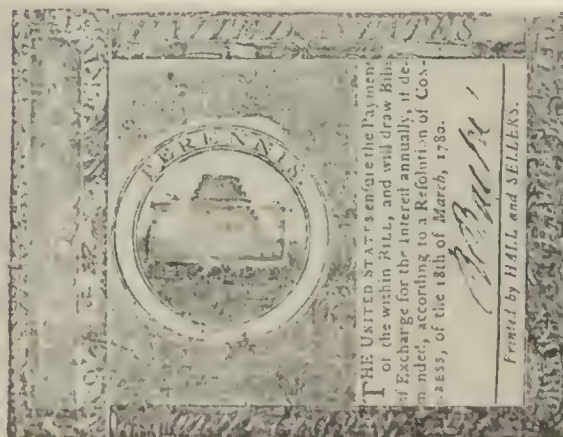 UNITED STATES
PERENNIS.
THE UNITED STATES enſure the Payment
of the within BILL, and will draw Bills
of Exchange for the Intereſt annually, if de-
manded, according to a Reſolution of CON-
GRESS, of the 18th of March, 1780.
Printed by HALL and SELLERS.